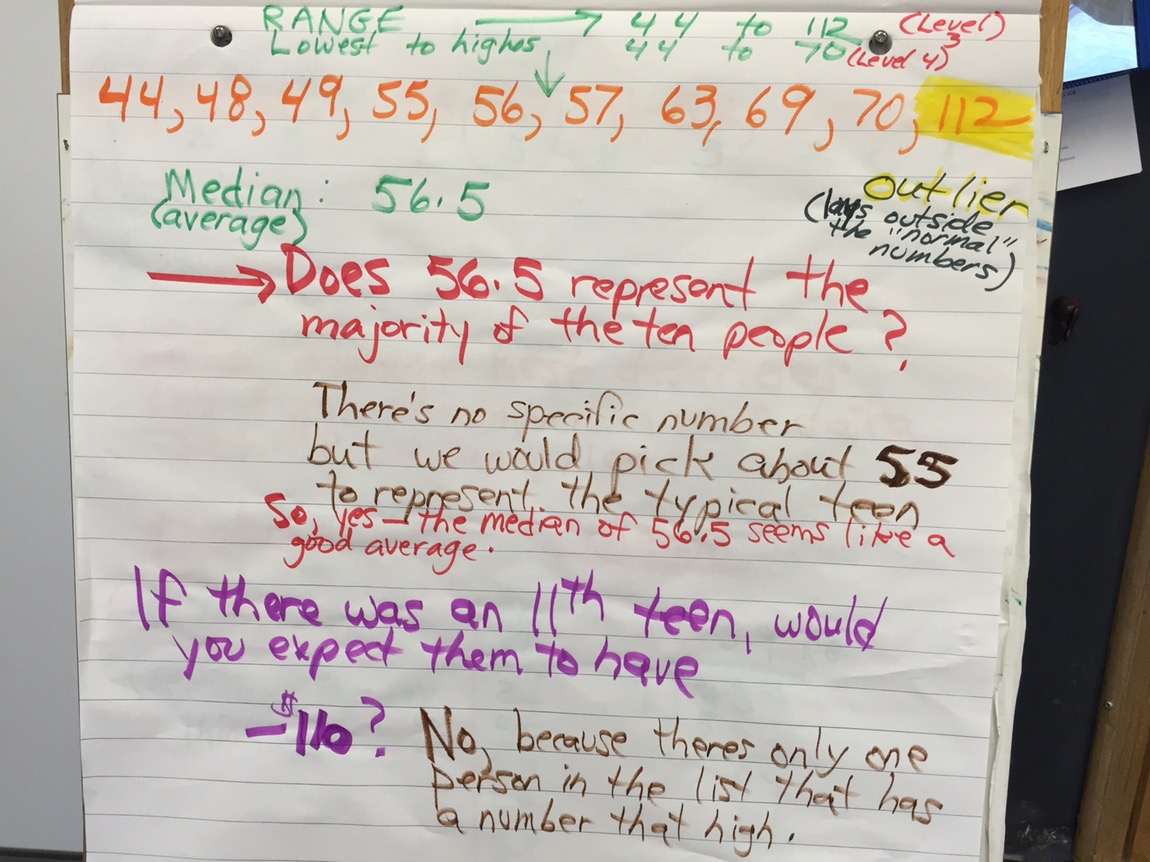 RANGE → 44 to 112 (Level 3)
Lowest to highes 44 to 70 (Level 4)
44, 48, 49, 55, 56, 57, 63, 69, 70, 112
Median: 56.5
(average)
outlier
(lays outside
the "normal"
numbers)
→ Does 56.5 represent the
majority of the ten people?
There's no specific number
but we would pick about 55
to represent the typical teen
So, yes – the median of 56.5 seems like a
good average.
If there was an 11th teen, would
you expect them to have
– $110?
No, because theres only one
person in the list that has
a number that high.